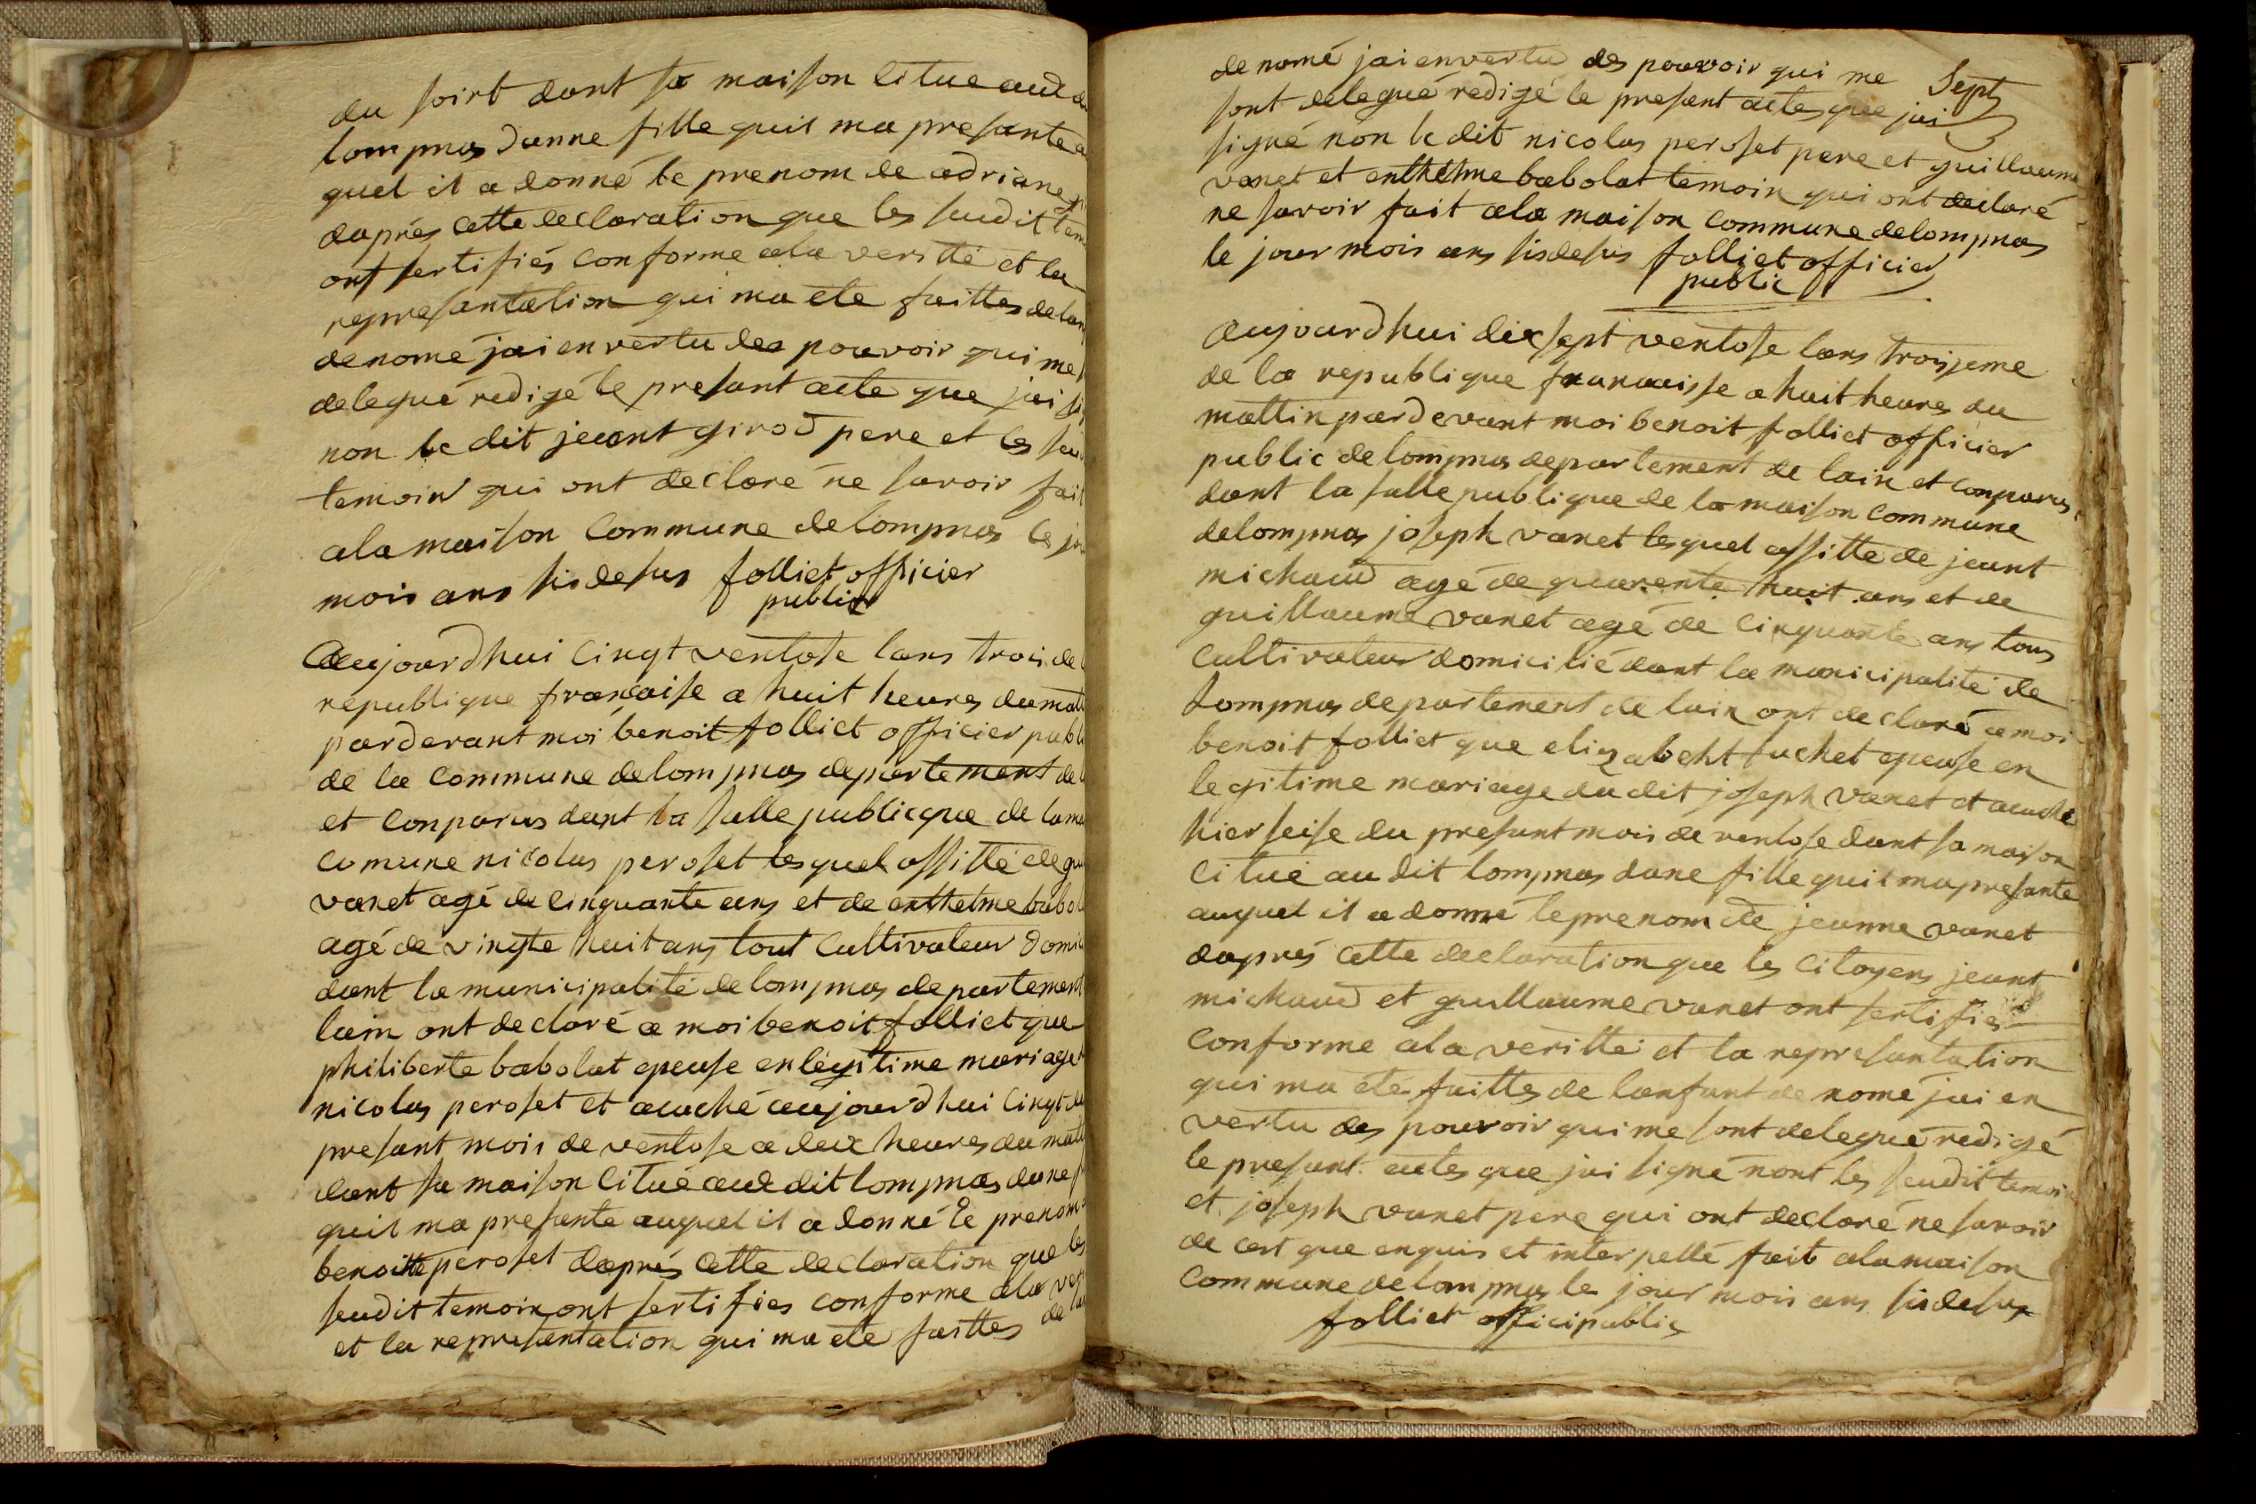 du soirt dant sa maison citue aud
lompnas dunne fille quil ma presante a
quel il a donné le prenom de adriane
daprés cette declaration que les sudit tem
ont sertifiés conforme ala veritté et la
represantation qui ma ete faittes de lan
denomé jai en vertu des pouvoir qui me
delegué rédigé le presant acte que jai si
non le dit jeant girod pere et les su
temoin qui ont declaré ne savoir fait
ala maison commune delompnas le jou
mois ans sisdesus folliet officier
public
aujourdhui cinqt ventose lans trois de
republique francaise a huit heures du mat
pardevant moi benoit folliet officier publ
de la commune delompnas departement de
et conparus dant la salle publicque de lama
comune nicolas peroset lesquel assitté de gu
vanet agé de cinquante ans et de enthelme babol
agé de vingte huit ans tout cultivateur domi
dant la municipalité delompnas departement
lain ont declaré a moi benoit folliet que
philiberte babolat epeuse en légitime mariage
nicolas peroset et acuché aujourdhui cinqt du
presant mois de ventose a deux heures du matt
dant sa maison citué aude dit lompnas dune f
quil ma presante auquel il a donné le prenom
benoitte peroset daprés cette declaration que les
seudit temoin ont sertifies conforme ala ver
et la represantation qui ma ete faittes de lan
de nomé jai envertu des pouvoir qui me
Sept
sont delegué rédigé le presant actes que jai
signé non le dit nicolas peroset pere et guillaume
vanet et enthelme babolat temoin qui ont declaré
ne savoir fait ala maison commune delompnas
le jour mois ans sisdesus folliet officier
public
aujourdhui dixsept ventose lans troisjeme
de la republique francaisse a huit heures du
mattin pardevant moi benoit folliet officier
public de lompnas departement de lain et conparus
dant la salle publique de la maison commune
delompnas joseph vanet lesquel assitte de jeant
michaud agé de quarente huit ans et de
guillaume vanet agé de cinquante ans tous
cultivateur domicilié dant la municipalité de
Lompnas departement de lain ont declaré a moi
benoit folliet que elizabeht luchet epeuse en
legitime mariage du dit joseph vanet et acuché
hier seise du presant mois de ventose dant sa maison
citué au dit lompnas dune fille quil ma presante
auquel il a donné leprenom de jeanne vanet
daprés cette declaration que les citoyens jeant
michaud et guillaume vanet ont sertifiés
conforme ala veritté et la represantation
qui ma éte faittes de lanfant de nomé jai en
vertu des pouvoir qui me sont delegué redigé
le presant actes que jai signé nont les seudit temoi
et joseph vanet pere qui ont declaré ne savoir
de cest que enquis et interpellé fait ala maison
commune delompnas le jour mois ans sisdesus
folliet officipublic